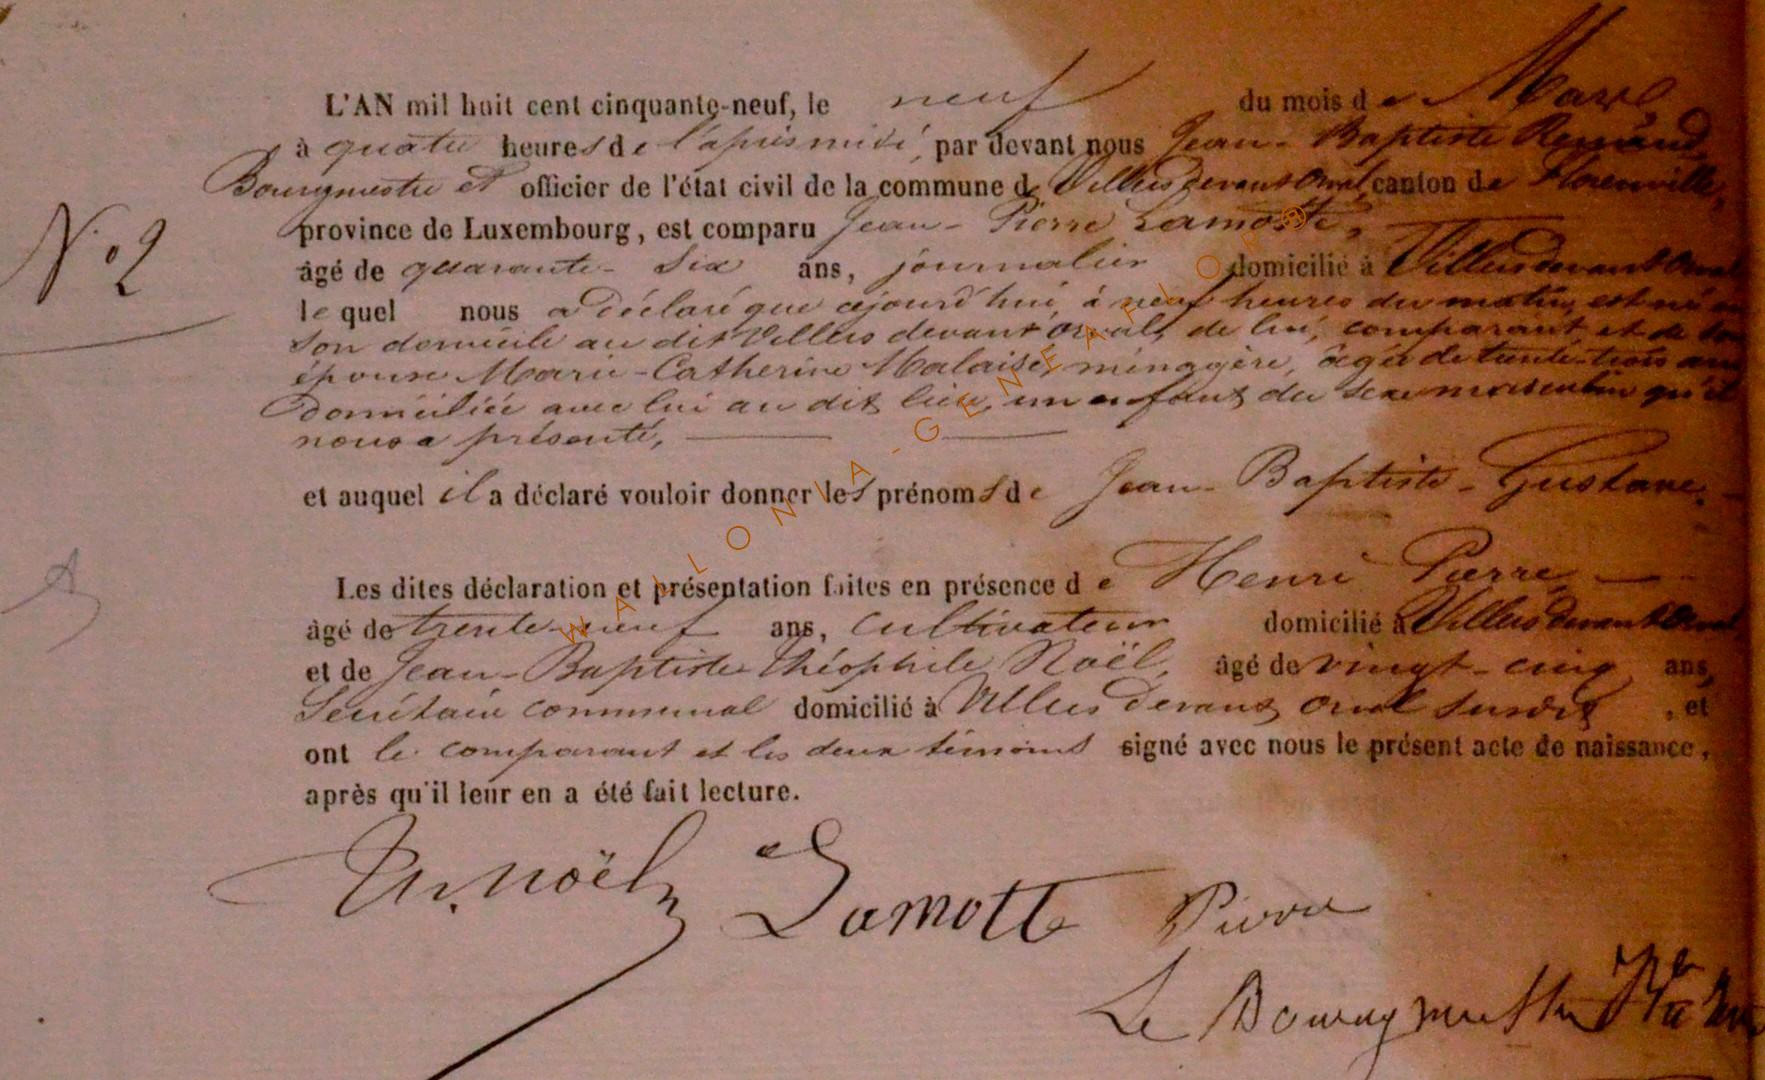 L'AN mil huit cent cinquante-neuf, le neuf du mois de Mars,
à quatre heures de l'après midi, par devant nous Jean-Baptiste
Bourgmestre et officier de l'état civil de la commune de Villers devant Orval, canton de Florenville,
province de Luxembourg, est comparu Jean-Pierre Lamotte,
N° 2
âgé de quarante-six ans, journalier domicilié à Villers devant Orval
lequel nous a déclaré que cejourd'hui, à neuf heures du matin, est né en
son domicile au dit Villers devant Orval, de lui, comparant et de son
épouse Marie-Catherine Malaise, ménagère, âgée de trente-trois ans
domiciliée avec lui au dit lieu, un enfant du sexe masculin qu'il
nous a présenté,
et auquel il a déclaré vouloir donner les prénoms de Jean-Baptiste-Gustave.
Les dites déclaration et présentation faites en présence de Henri Pierre,
âgé de trente-neuf ans, cultivateur domicilié à Villers devant Orval
et de Jean-Baptiste Théophile Noël, âgé de vingt-cinq ans,
Secrétaire communal domicilié à Villers devant Orval susdit, et
ont le comparant et les deux témoins signé avec nous le présent acte de naissance,
après qu'il leur en a été fait lecture.
Th. Noël Lamotte Pierre
Le Bourgmestre
WALLONIA-GENEAFLOR®